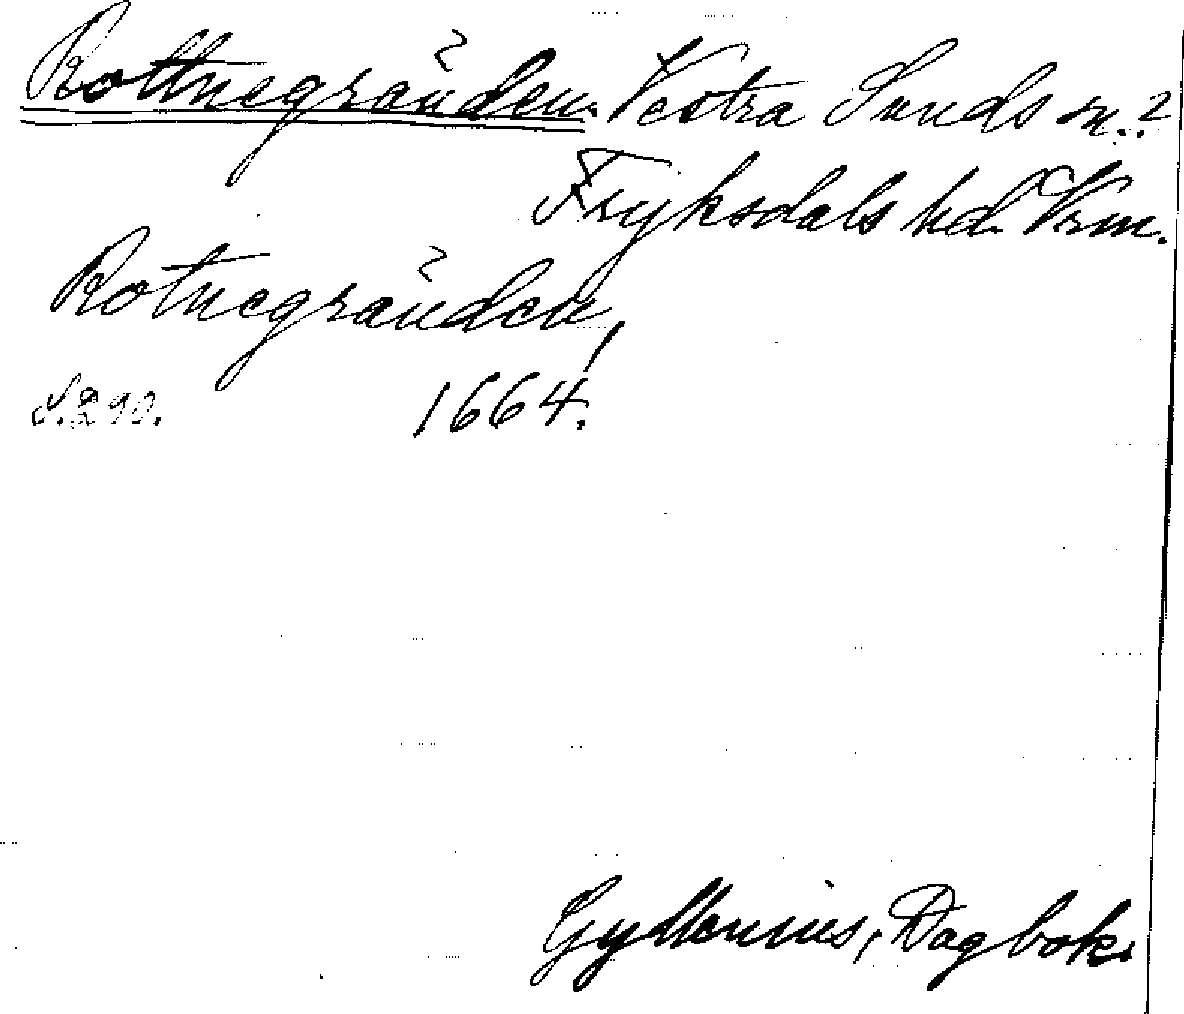 Rottnegränden. Vestra Sunds sn.?
Fryksdals hd. Vrm.
Rotnegränden,
S. 290. 1664!
Gyllenius, Dagbok.